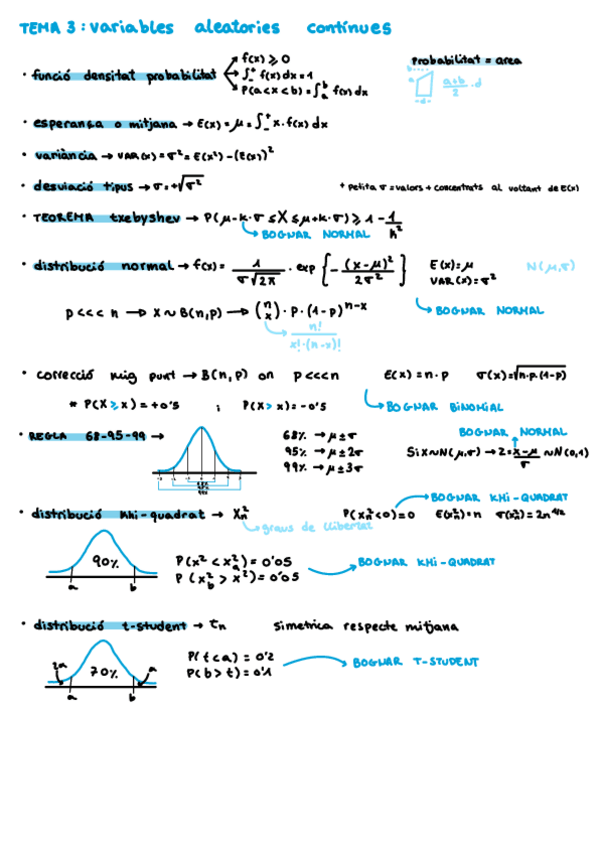 TEMA 3: variables aleatories contínues
f(x) ⩾ 0
Probabilitat = area
· funció densitat probabilitat ∫₋⁺ f(x) dx = 1
P(a<x<b) = ∫ₐᵇ f(x) dx
b
a
d
(a+b)/2 · d
· esperança o mitjana → E(x) = μ = ∫₋⁺ x · f(x) dx
· variància → VAR(x) = σ² = E(x²) − (E(x))²
· desviació tipus → σ = +√σ²
+ petita σ = valors + concentrats al voltant de E(x)
· TEOREMA txebyshev → P(μ − k·σ ≤ X ≤ μ + k·σ) ⩾ 1 − 1/k²
BOGNAR NORMAL
· distribució normal → f(x) = 1/(σ√2π) · exp {−(x−μ)²/2σ²} E(x) = μ N(μ,σ)
VAR(x) = σ²
BOGNAR NORMAL
p <<< n → X ~ B(n,p) → (n x) · p · (1−p)ⁿ⁻ˣ
n!/(x!·(n−x)!)
· correcció mig punt → B(n,p) on p<<<n E(x) = n·p σ(x) = √n·p·(1−p)
* P(X ⩾ x) = +0'5 ; P(X > x) = −0'5
BOGNAR BINOMIAL
· REGLA 68-95-99 →
68% → μ ± σ
95% → μ ± 2σ
99% → μ ± 3σ
BOGNAR NORMAL
Si X~N(μ,σ) → Z = (x−μ)/σ ~ N(0,1)
68%
95%
99%
BOGNAR KHI-QUADRAT
· distribució khi-quadrat → Xₙ² P(xₙ²<0) = 0 E(xₙ²) = n σ(xₙ²) = 2n^1/2
graus de llibertat
90%
a b
P(x² < xₐ²) = 0'05
P(x_b² > x²) = 0'05
BOGNAR KHI-QUADRAT
· distribució t-student → tₙ Simetrica respecte mitjana
2a 70% a
a b
P(t<a) = 0'2
P(b>t) = 0'1
BOGNAR T-STUDENT